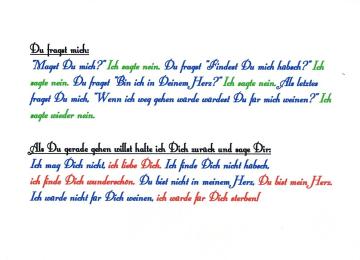 Du fragst mich:
"Magst Du mich?" Ich sagte nein. Du fragst "Findest Du mich hübsch?" Ich
sagte nein. Du fragst "Bin ich in Deinem Herz?" Ich sagte nein. Als letztes
fragst Du mich, "Wenn ich weg gehen würde würdest Du für mich weinen?" Ich
sagte wieder nein.
Als Du gerade gehen willst halte ich Dich zurück und sage Dir:
Ich mag Dich nicht, ich liebe Dich. Ich finde Dich nicht hübsch,
ich finde Dich wunderschön. Du bist nicht in meinem Herz, Du bist mein Herz.
Ich würde nicht für Dich weinen, ich würde für Dich sterben!